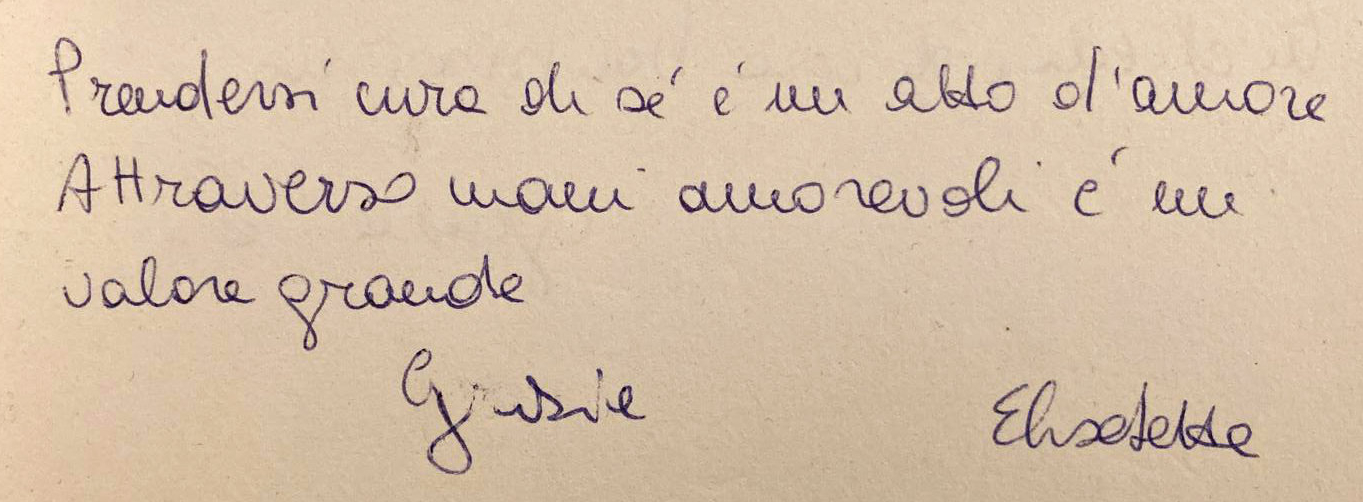 Prendersi cura di sé é un atto d'amore
Attraverso mani amorevoli é un
valore grande
Grazie Elisabetta